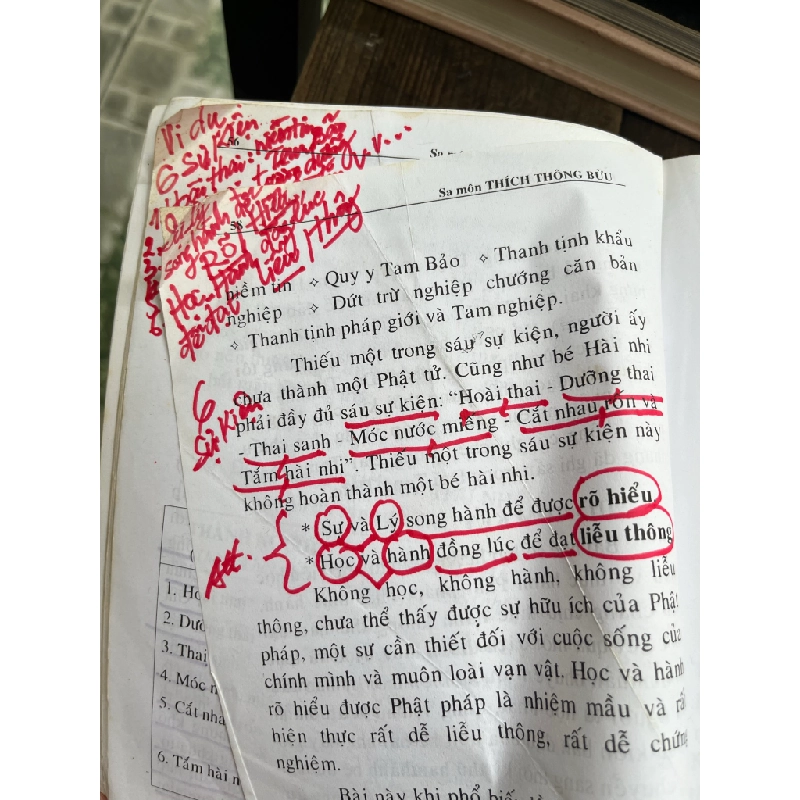 Ví dụ
6 Sự kiện
Sự Lý
song hành để
Rõ Hiểu
Học Hành đồng lúc
để đạt liễu Thông
V.v...
Sa môn THÍCH THÔNG BỬU
niềm tin ✧ Quy y Tam Bảo ✧ Thanh tịnh khẩu
nghiệp ✧ Dứt trừ nghiệp chướng căn bản
✧ Thanh tịnh pháp giới và Tam nghiệp.
Thiếu một trong sáu sự kiện, người ấy
chưa thành một Phật tử. Cũng như bé Hài nhi
phải đầy đủ sáu sự kiện: “Hoài thai - Dưỡng thai
- Thai sanh - Móc nước miếng - Cắt nhau rốn và
Tắm hài nhi”. Thiếu một trong sáu sự kiện này
không hoàn thành một bé hài nhi.
6
Sự kiện
* Sự và Lý song hành để được rõ hiểu
* Học và hành đồng lúc để đạt liễu thông
Không học, không hành, không liễu
thông, chưa thể thấy được sự hữu ích của Phật
pháp, một sự cần thiết đối với cuộc sống của
chính mình và muôn loài vạn vật. Học và hành
rõ hiểu được Phật pháp là nhiệm mầu và rất
hiện thực rất dễ liễu thông, rất dễ chứng
nghiệm.
Bài này khi phổ biế
1. Ho
2. Dưỡ
3. Thai
4. Móc n
5. Cắt nha
6. Tắm hài n